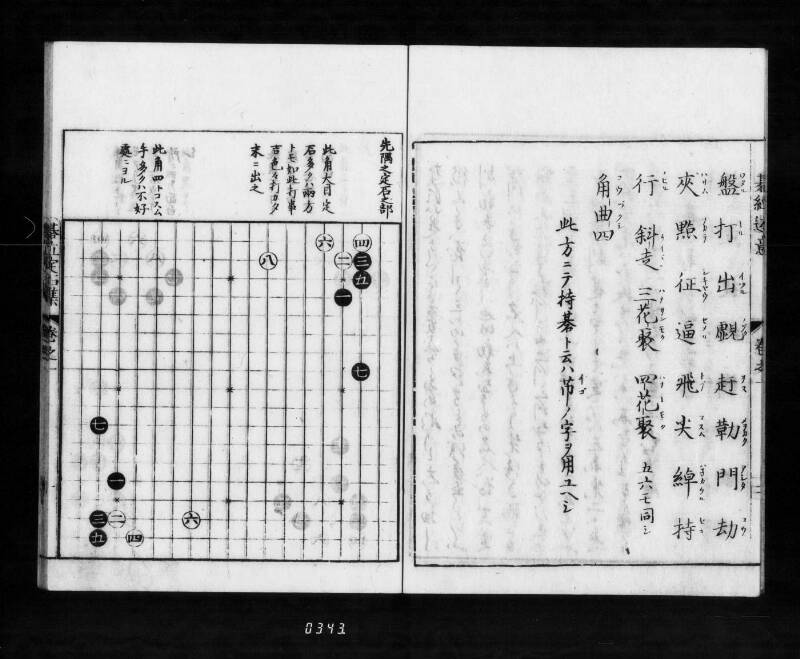 盤打出覷赶勒門劫
夾㸃征逼飛尖綽持
行斜走三花聚四花聚五六モ同シ
角曲四
此方ニテ持碁ト云ハ芇ノ字ヲ用ユヘシ
先隅之定石之部
此角大目定
石多クハ両方
トモ如此打事
吉色々打カタ
末ニ出之
此角四トコスム
手多クハ不好
處ニヨル
四
六
二
三
八
五
一
七
七
一
三
二
六
五
四
0343